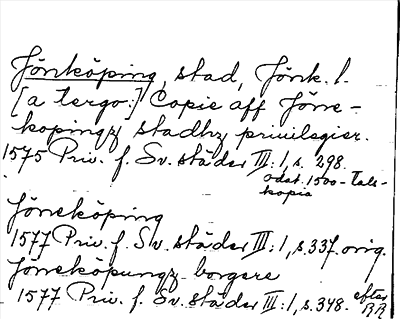 Jönköping, stad, Jönk. l.
[a tergo:] Copie aff Jöne-
kopingz stadhz privilegier.
1575 Priv. f. Sv. städer III:1, s. 298.
odat. 1500-tals-
kopia
Jöneköping
1577 Priv. f. Sv. städer III:1, s. 337. orig.
Jöneköpungz borgere
1577 Priv. f. Sv. städer III:1, s. 348. efter
RR